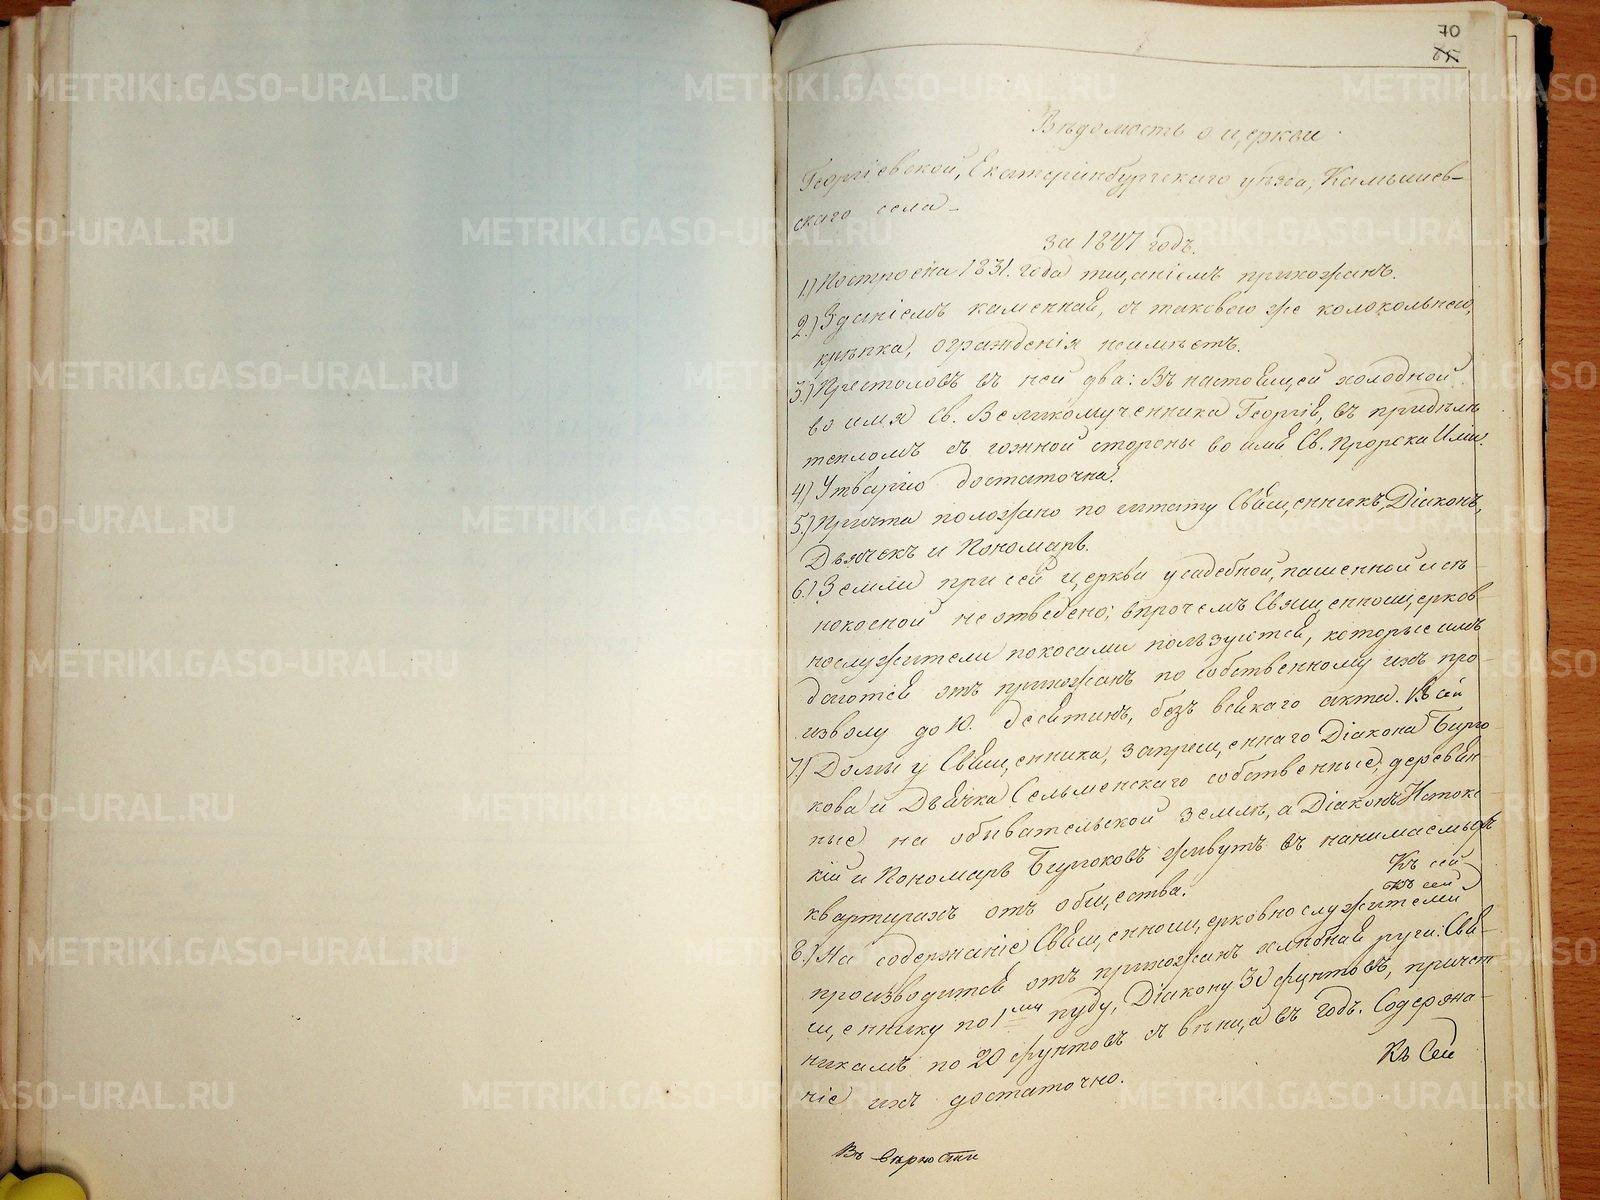 70
65
Вѣдомость о церкви
Георгіевской, Екатеринбургскаго уѣзда, Камышев-
скаго села
за 1847 годъ.
1.) Построена 1831. года тщаніемъ прихожанъ.
2.) Зданіемъ каменная, съ таковою же колокольнею,
крѣпка, огражденія неимѣетъ.
3.) Престоловъ въ ней два: Въ настоящей холодной
во имя Св. Великомученника Георгія, въ придѣлѣ
тепломъ съ южной стороны во имя Св. Пророка Иліи.
4.) Утварію достаточна.
5.) Причта положено по штату Священникъ, Діаконъ,
Дьячекъ и Пономарь.
6.) Земли при сей церкви усадебной, пашенной и сѣ-
нокосной не отведено; впрочемъ Священноцерков-
нослужители покосами пользуются, которые имъ
даются отъ прихожанъ по собственному ихъ про-
изволу до 10. десятинъ, безъ всякаго акта. Къ сей
7.) Домы у Священника, запрещеннаго Діакона Бирю-
кова и Дьячка Сельменскаго собственные, деревян-
ные на обывательской землѣ, а Діаконъ
кій и Пономарь Бирюковъ живутъ въ нанимаемыхъ
квартирахъ отъ общества. Къ сей
къ сей
8.) На содержаніе Священноцерковнослужителей
производится отъ прихожанъ хлѣбная руга: Свя-
щеннику по 1му пуду, Діакону 30 фунтовъ, причет-
никамъ по 20 фунтовъ съ вѣнца въ годъ. Содержа-
ніе ихъ достаточно. Къ Сей
Въ вѣрности
METRIKI.GASO-URAL.RU